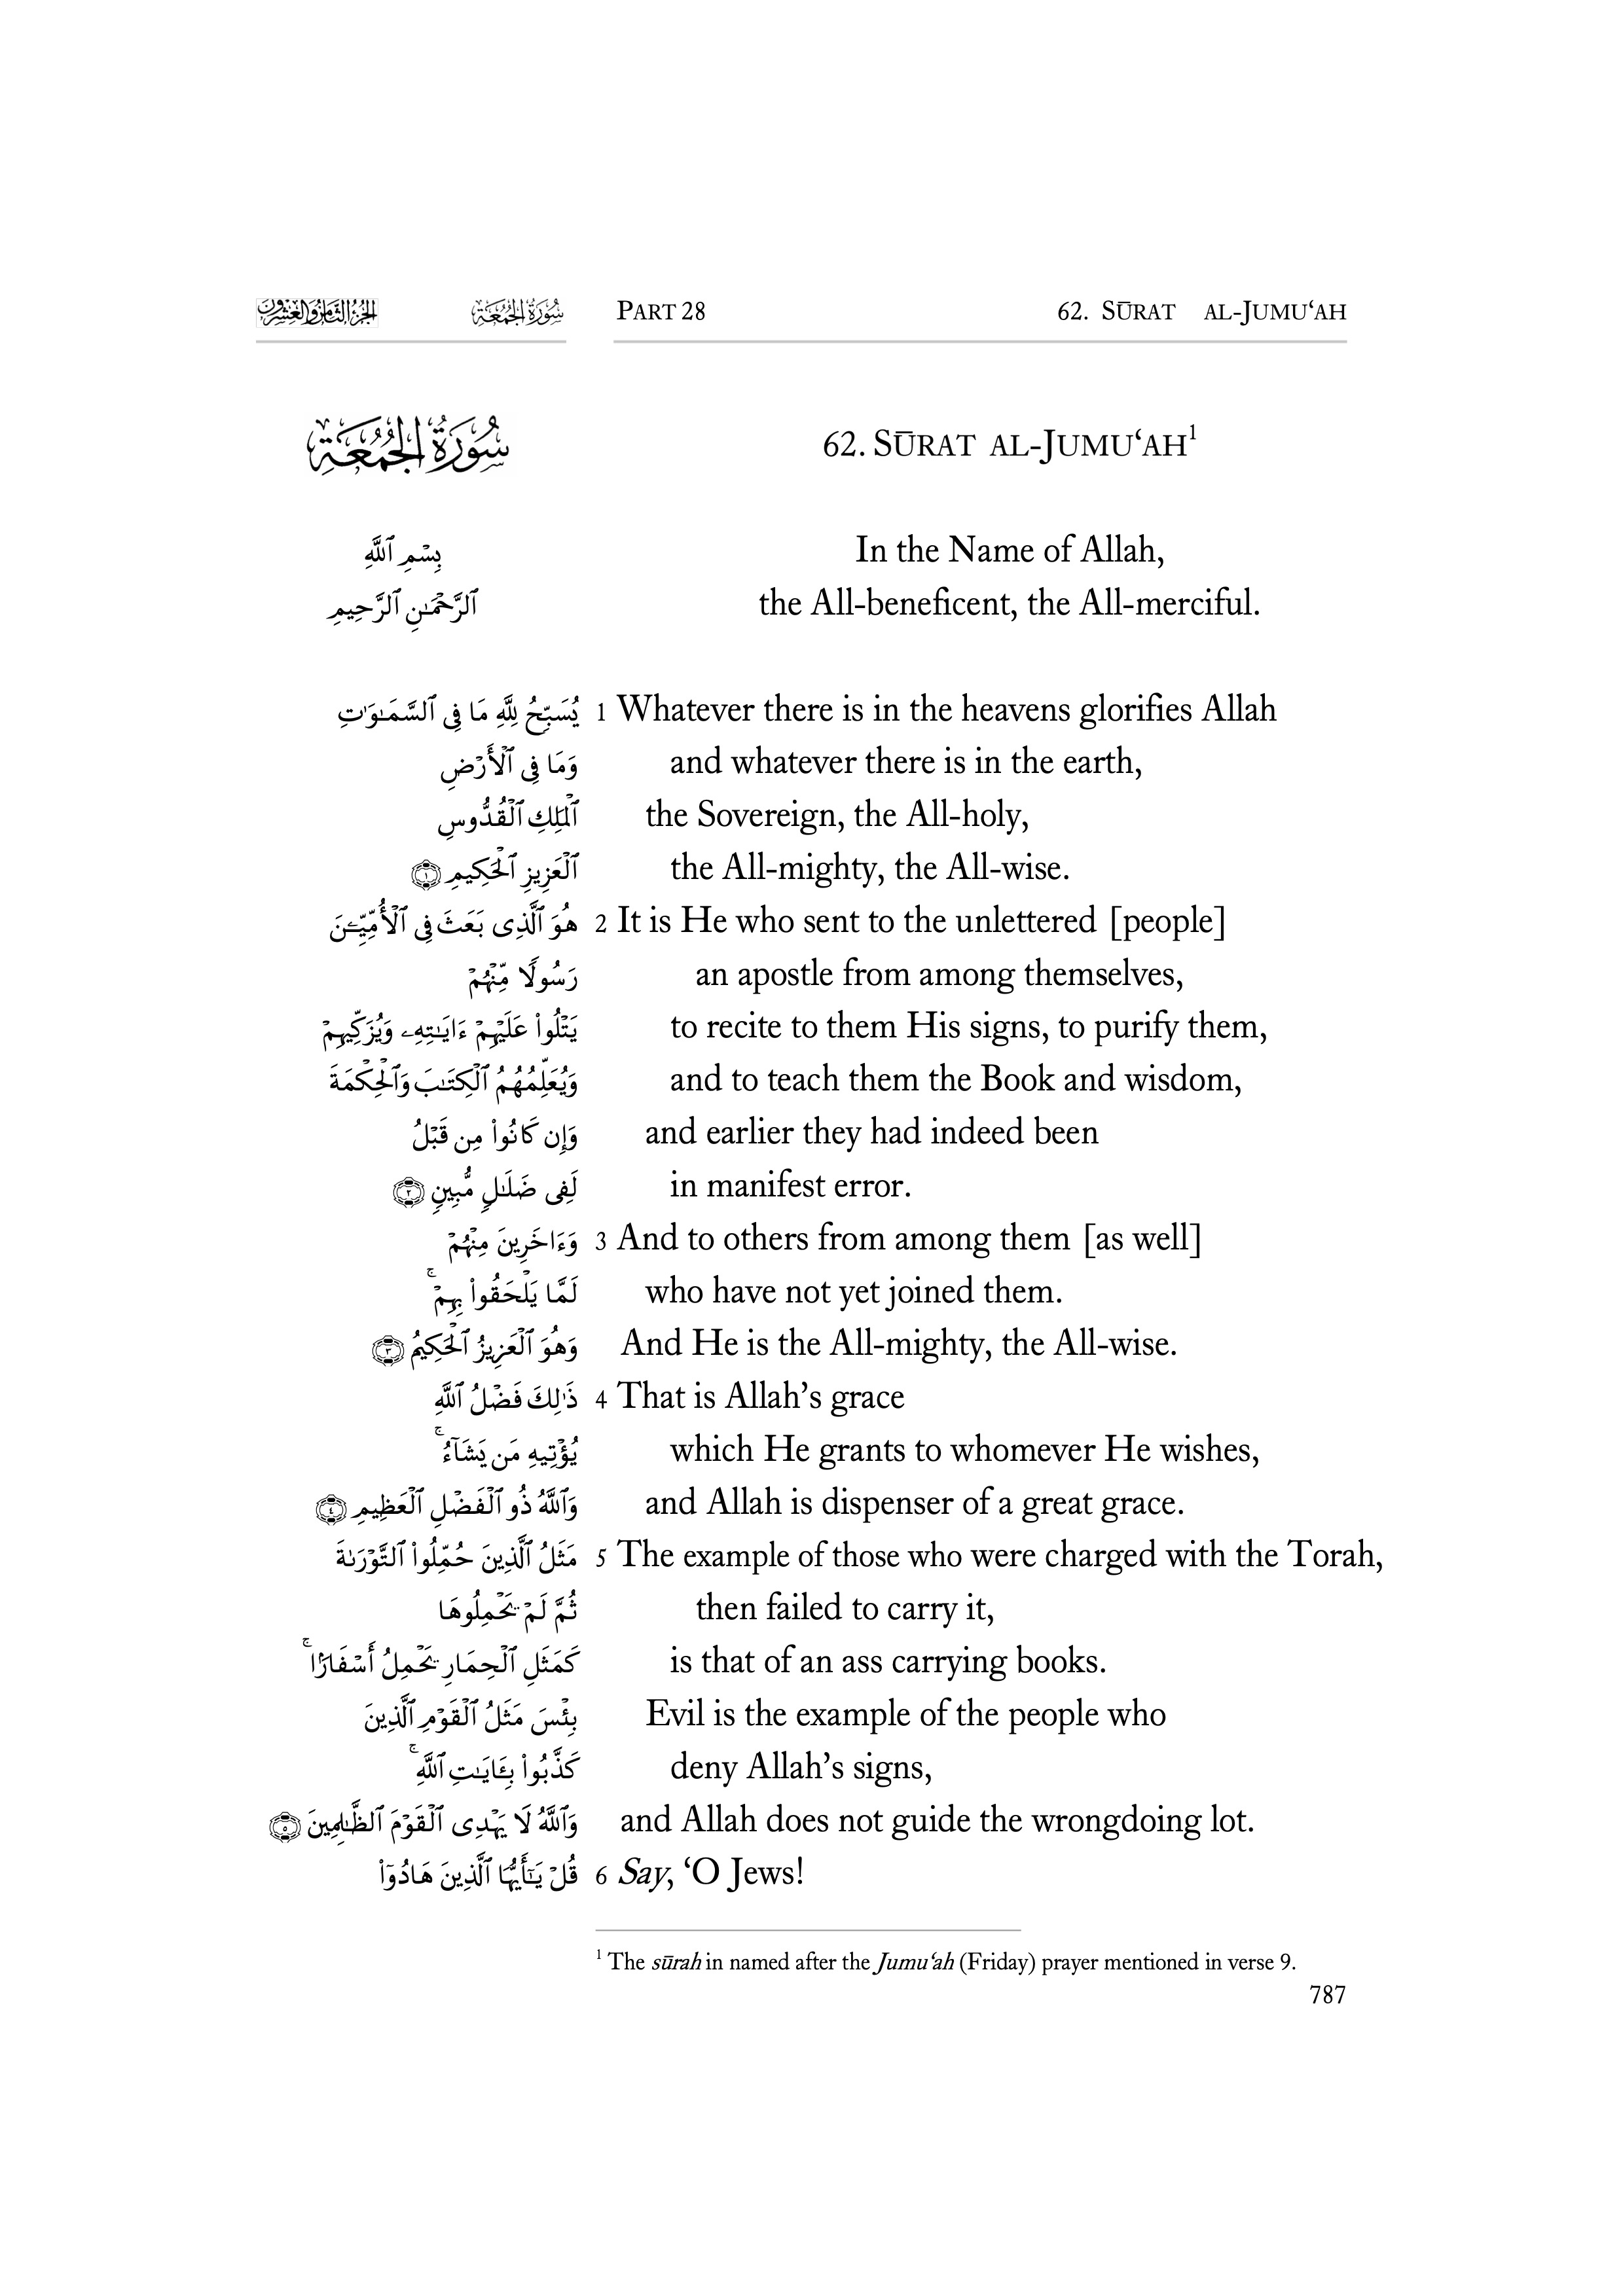 الجزء الثامن والعشرون سُورَةُ الجُمُعَةِ PART 28 62. SŪRAT AL-JUMU‘AH
سُورَةُ الجُمُعَةِ 62. SŪRAT AL-JUMU‘AH¹
بِسْمِ ٱللَّهِ In the Name of Allah,
ٱلرَّحْمَـٰنِ ٱلرَّحِيمِ the All-beneficent, the All-merciful.
يُسَبِّحُ لِلَّهِ مَا فِى ٱلسَّمَـٰوَٰتِ 1 Whatever there is in the heavens glorifies Allah
وَمَا فِى ٱلْأَرْضِ and whatever there is in the earth,
ٱلْمَلِكِ ٱلْقُدُّوسِ the Sovereign, the All-holy,
ٱلْعَزِيزِ ٱلْحَكِيمِ ١ the All-mighty, the All-wise.
هُوَ ٱلَّذِى بَعَثَ فِى ٱلْأُمِّيِّـۧنَ 2 It is He who sent to the unlettered [people]
رَسُولًا مِّنْهُمْ an apostle from among themselves,
يَتْلُوا۟ عَلَيْهِمْ ءَايَـٰتِهِۦ وَيُزَكِّيهِمْ to recite to them His signs, to purify them,
وَيُعَلِّمُهُمُ ٱلْكِتَـٰبَ وَٱلْحِكْمَةَ and to teach them the Book and wisdom,
وَإِن كَانُوا۟ مِن قَبْلُ and earlier they had indeed been
لَفِى ضَلَـٰلٍ مُّبِينٍ ٢ in manifest error.
وَءَاخَرِينَ مِنْهُمْ 3 And to others from among them [as well]
لَمَّا يَلْحَقُوا۟ بِهِمْ ۚ who have not yet joined them.
وَهُوَ ٱلْعَزِيزُ ٱلْحَكِيمُ ٣ And He is the All-mighty, the All-wise.
ذَٰلِكَ فَضْلُ ٱللَّهِ 4 That is Allah’s grace
يُؤْتِيهِ مَن يَشَآءُ ۚ which He grants to whomever He wishes,
وَٱللَّهُ ذُو ٱلْفَضْلِ ٱلْعَظِيمِ ٤ and Allah is dispenser of a great grace.
مَثَلُ ٱلَّذِينَ حُمِّلُوا۟ ٱلتَّوْرَىٰةَ 5 The example of those who were charged with the Torah,
ثُمَّ لَمْ يَحْمِلُوهَا then failed to carry it,
كَمَثَلِ ٱلْحِمَارِ يَحْمِلُ أَسْفَارًۢا ۚ is that of an ass carrying books.
بِئْسَ مَثَلُ ٱلْقَوْمِ ٱلَّذِينَ Evil is the example of the people who
كَذَّبُوا۟ بِـَٔايَـٰتِ ٱللَّهِ ۚ deny Allah’s signs,
وَٱللَّهُ لَا يَهْدِى ٱلْقَوْمَ ٱلظَّـٰلِمِينَ ٥ and Allah does not guide the wrongdoing lot.
قُلْ يَـٰٓأَيُّهَا ٱلَّذِينَ هَادُوٓا۟ 6 Say, ‘O Jews!
¹ The sūrah in named after the Jumu‘ah (Friday) prayer mentioned in verse 9.
787